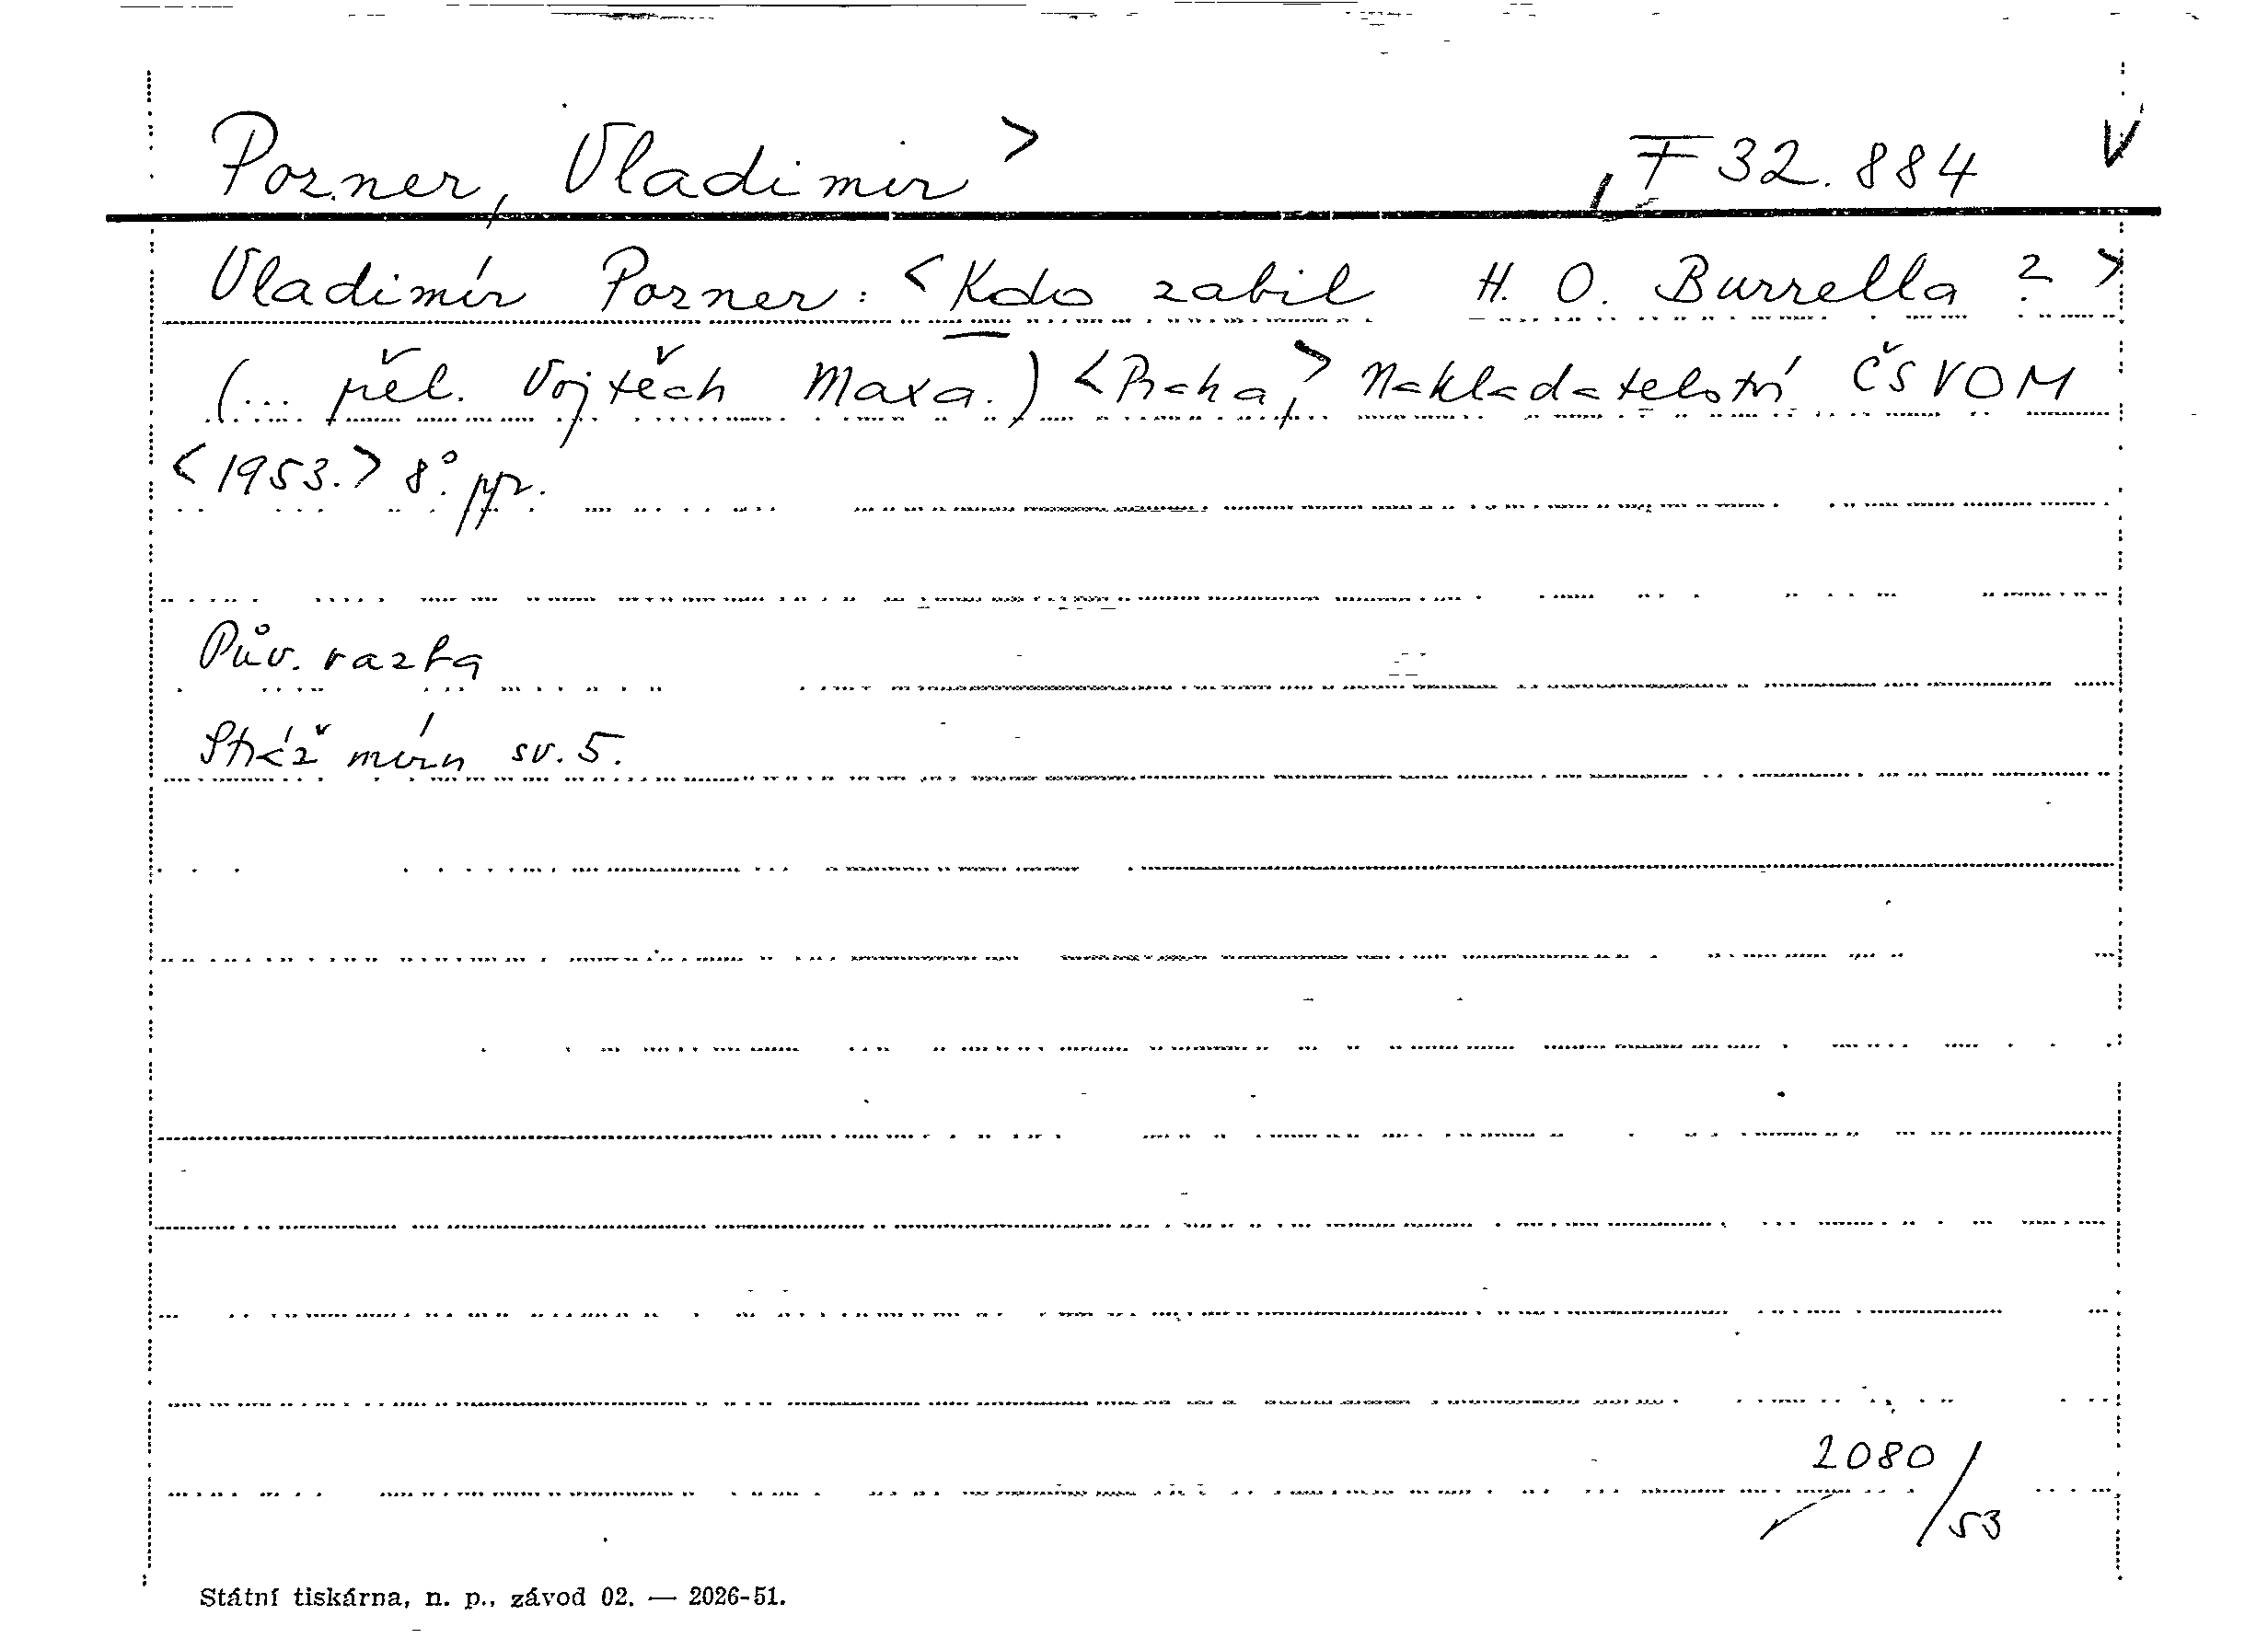 Pozner, Vladimir > F 32.884 V
Vladimír Pozner: <Kdo zabil H. O. Burrella ?>
(... přel. Vojtěch Maxa.) <Praha,> Nakladatelství ČSVOM
<1953.> 8°. ppr.
Pův. vazba
Stráž míru sv. 5.
2080/53
Státní tiskárna, n. p., závod 02. — 2026-51.